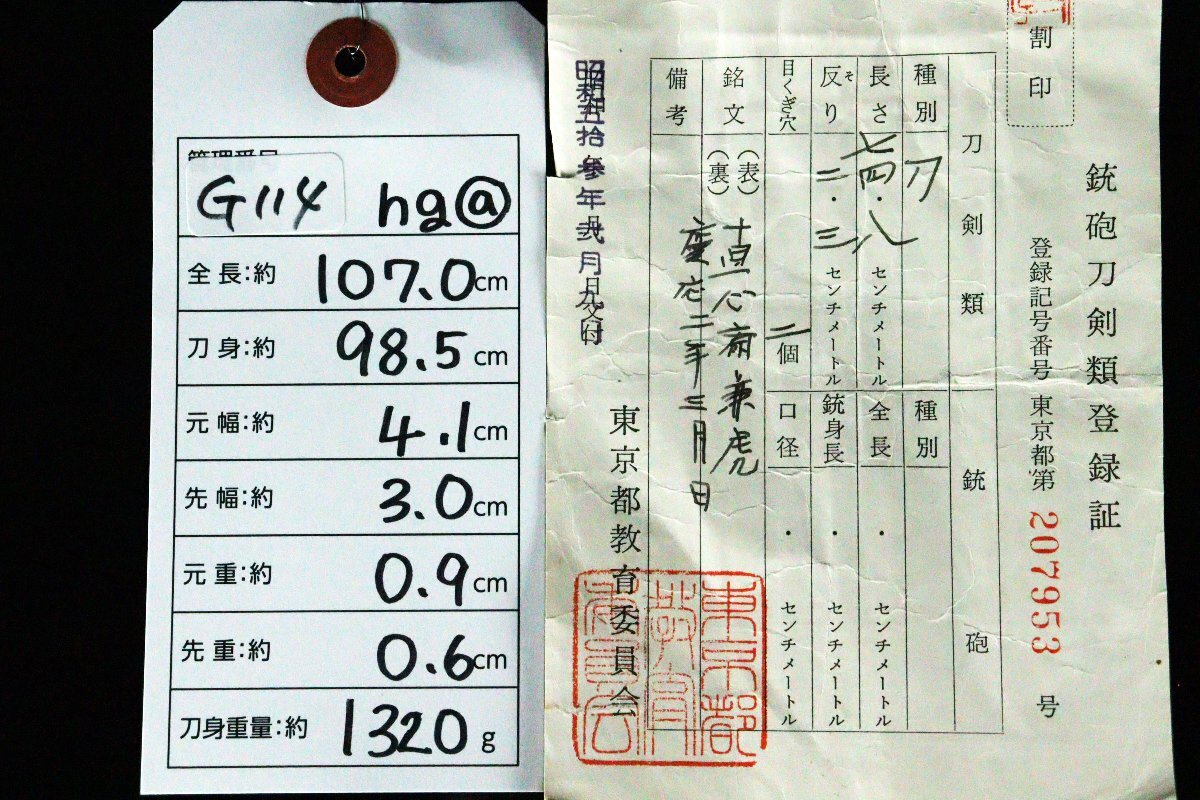 G114 hg@
全長:約 107.0cm
刀身:約 98.5cm
元幅:約 4.1cm
先幅:約 3.0cm
元重:約 0.9cm
先重:約 0.6cm
刀身重量:約 1320g
割印
銃砲刀剣類登録証
登録記号番号 東京都第 207953 号
刀剣類 銃砲
種別 刀 種別
長さ 七四・八 センチメートル 全長 ・ センチメートル
反り そ 二・三 センチメートル 銃身長 ・ センチメートル
目くぎ穴 二個 口径 ・ センチメートル
銘文 (表) 直心斎兼虎
(裏) 慶応二年三月日
備考
昭和五拾参年弐月九日交付
東京都教育委員会
東京都教育委員会